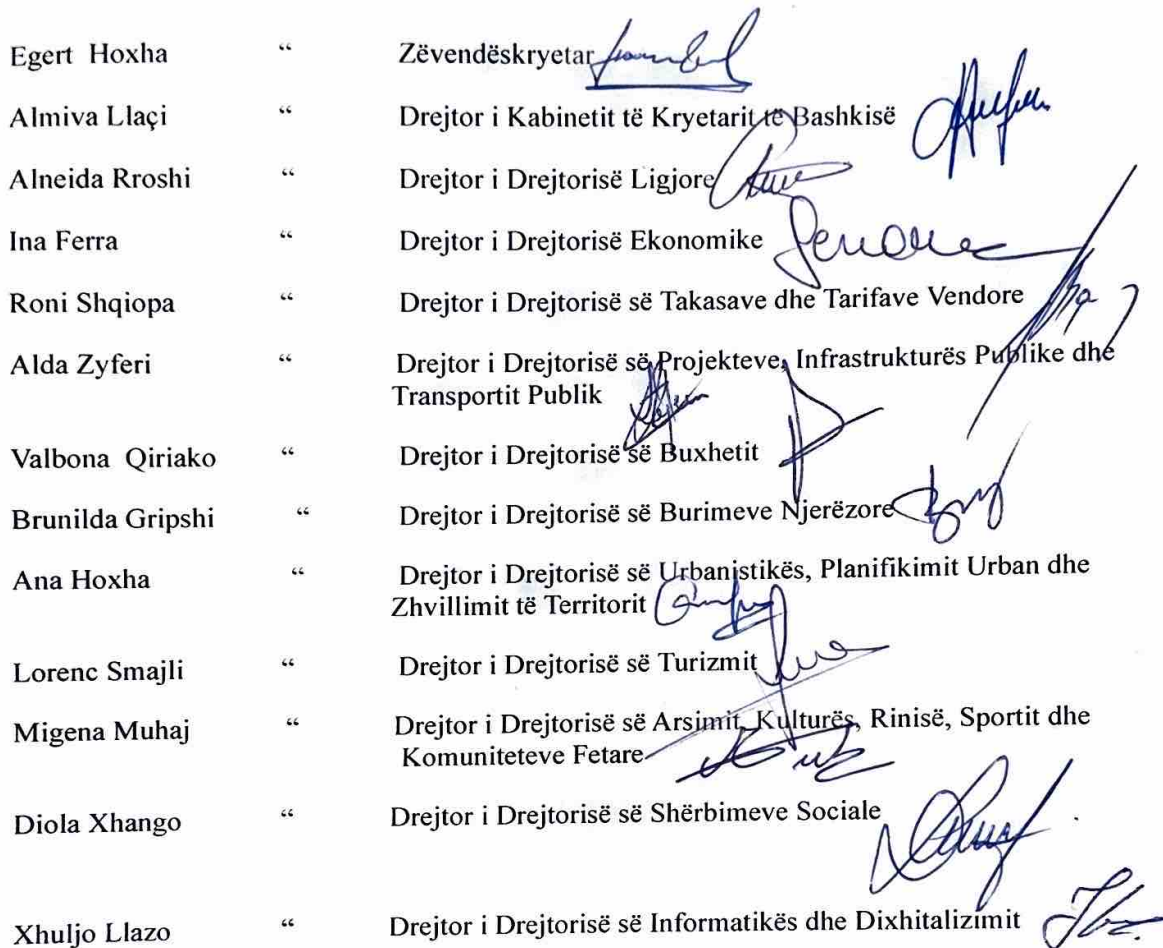 Egert Hoxha “ Zëvendëskryetar
Almiva Llaçi “ Drejtor i Kabinetit të Kryetarit të Bashkisë
Alneida Rroshi “ Drejtor i Drejtorisë Ligjore
Ina Ferra “ Drejtor i Drejtorisë Ekonomike
Roni Shqiopa “ Drejtor i Drejtorisë së Takasave dhe Tarifave Vendore
Alda Zyferi “ Drejtor i Drejtorisë së Projekteve, Infrastrukturës Publike dhe
Transportit Publik
Valbona Qiriako “ Drejtor i Drejtorisë së Buxhetit
Brunilda Gripshi “ Drejtor i Drejtorisë së Burimeve Njerëzore
Ana Hoxha “ Drejtor i Drejtorisë së Urbanistikës, Planifikimit Urban dhe
Zhvillimit të Territorit
Lorenc Smajli “ Drejtor i Drejtorisë së Turizmit
Migena Muhaj “ Drejtor i Drejtorisë së Arsimit, Kulturës, Rinisë, Sportit dhe
Komuniteteve Fetare
Diola Xhango “ Drejtor i Drejtorisë së Shërbimeve Sociale
Xhuljo Llazo “ Drejtor i Drejtorisë së Informatikës dhe Dixhitalizimit